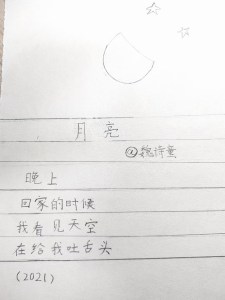 月 亮
@魏诗童
晚上
回家的时候
我看见天空
在给我吐舌头
(2021)